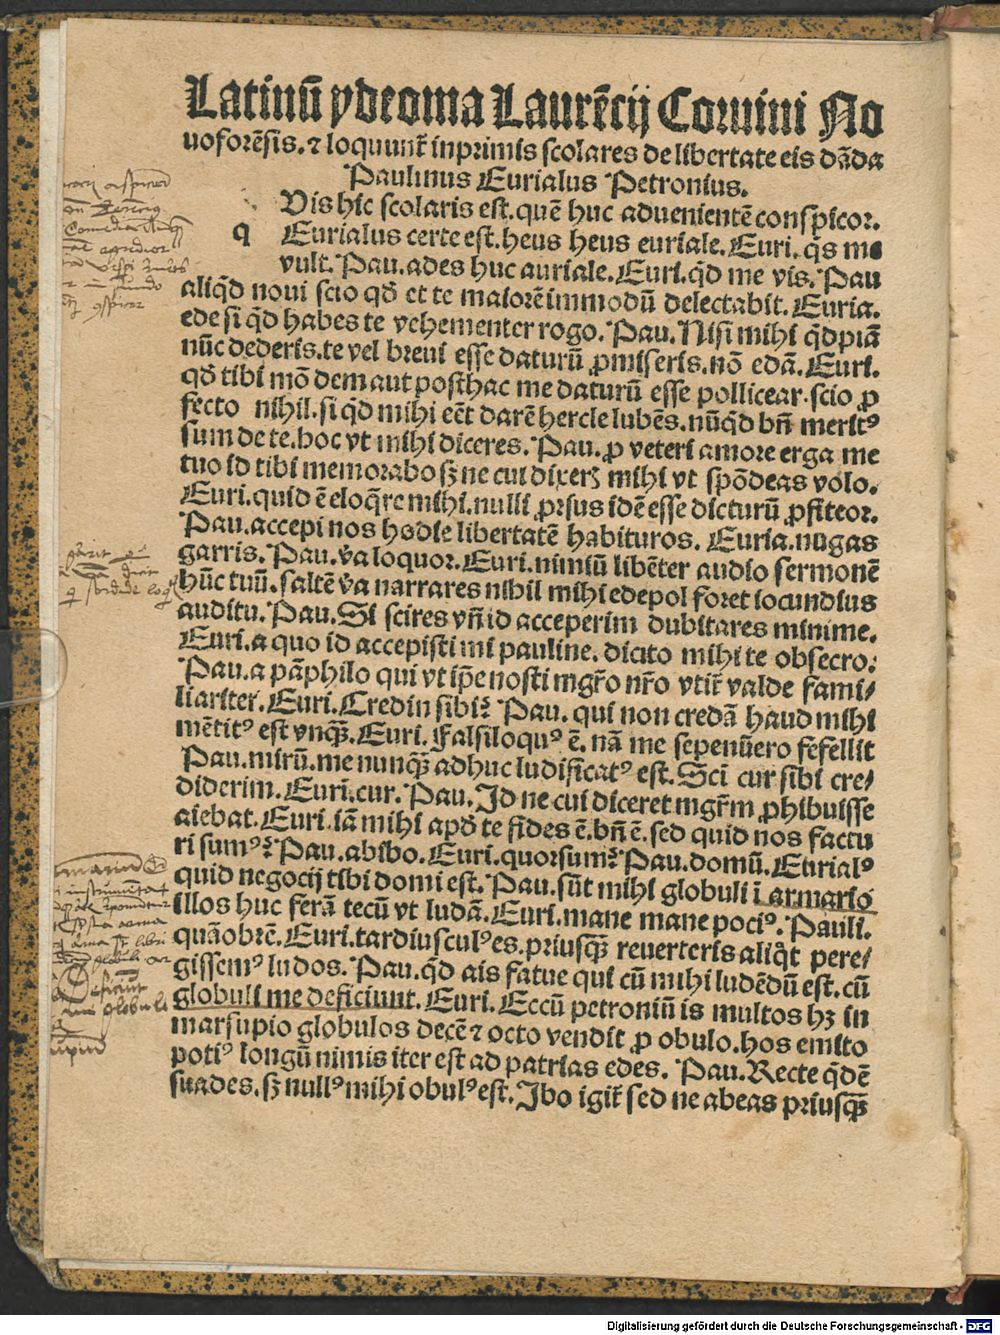 Latinū ydeoma Laurēcij Coruini No
uoforēsis. ⁊ loquunt̄ inprimis scolares de libertate eis dāda
Paulinus Eurialus Petronius.
q Vis hic scolaris est. quē huc aduenientē conspicor.
Eurialus certe est. heus heus euriale. Euri. q̄s me
vult. Pau. ades huc auriale. Euri. qd̄ me vis. Pau
aliqd̄ noui scio qđ et te maiorē immodū delectabit. Euria.
ede si qd̄ habes te vehementer rogo. Pau. Nisi mihi qd̄piā
nūc dederis. te vel breui esse daturū ꝓmiseris. nō edā. Euri.
qđ tibi mō dem aut posthac me daturū esse pollicear. scio ꝓ
fecto nihil. si qd̄ mihi eēt darē hercle lubēs. nūqd̄ bn̄ meritꝰ
sum de te. hoc vt mihi diceres. Pau. ꝓ veteri amore erga me
tuo id tibi memorabo sꝫ ne cui dixerꝭ mihi vt spōdeas volo.
Euri. quid ē eloq̄re mihi. nulli ꝓrsus idē esse dicturū ꝓfiteor.
Pau. accepi nos hodie libertatē habituros. Euria. nugas
garris. Pau. v̄a loquor. Euri. nimiū libēter audio sermonē
hūc tuū. saltē v̄a narrares nihil mihi edepol foret iocundius
auditu. Pau. Si scires vn̄ id acceperim dubitares minime.
Euri. a quo id accepisti mi pauline. dicito mihi te obsecro.
Pau. a pāphilo qui vt ip̄e nosti mgr̄o nr̄o vtit̄ valde fami/
liariter. Euri. Credin sibi? Pau. qui non credā haud mihi
mētitꝰ est vnqꝫ. Euri. Falsiloquꝰ ē. nā me sepenūero fefellit
Pau. mirū. me nunqꝫ adhuc ludificatꝰ est. Sci cur sibi cre/
diderim. Euri. cur. Pau. Id ne cui diceret mgr̄m ꝓhibuisse
aiebat. Euri. iā mihi apđ te fides ē. bn̄ ē. sed quid nos factu
ri sumꝰ? Pau. abibo. Euri. quorsum? Pau. domū. Eurialꝰ
quid negocij tibi domi est. Pau. sūt mihi globuli ī armario
illos huc ferā tecū vt ludā. Euri. mane mane pociꝰ. Pauli.
quāobrē. Euri. tardiusculꝰ es. priusqꝫ reuerteris aliq̄t pere/
gissemꝰ ludos. Pau. qd̄ ais fatue qui cū mihi ludēdū est. cū
globuli me deficiunt. Euri. Eccū petroniū is multos hꝫ in
marsupio globulos decē ⁊ octo vendit ꝓ obulo. hos emito
potiꝰ longū nimis iter est ad patrias edes. Pau. Recte qdē
suades. sꝫ nullꝰ mihi obulꝰ est. Ibo igit̄ sed ne abeas priusqꝫ
Deficiunt
globuli
Digitalisierung gefördert durch die Deutsche Forschungsgemeinschaft - DFG